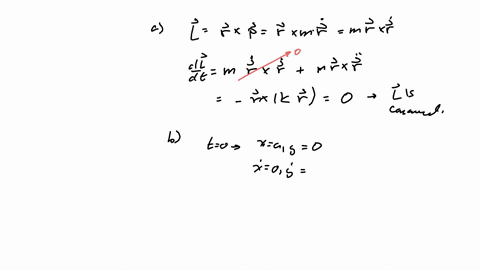 a) L⃗ = r⃗ × p⃗ = r⃗ × m ṙ⃗ = m r⃗ × ṙ⃗
dL⃗/dt = m ṙ⃗ × ṙ⃗ + m r⃗ × r̈⃗ 0
= - r⃗ × (k r⃗) = 0 → L⃗ is
conserved.
b) t=0 → x=a, y=0
ẋ=0, ẏ=